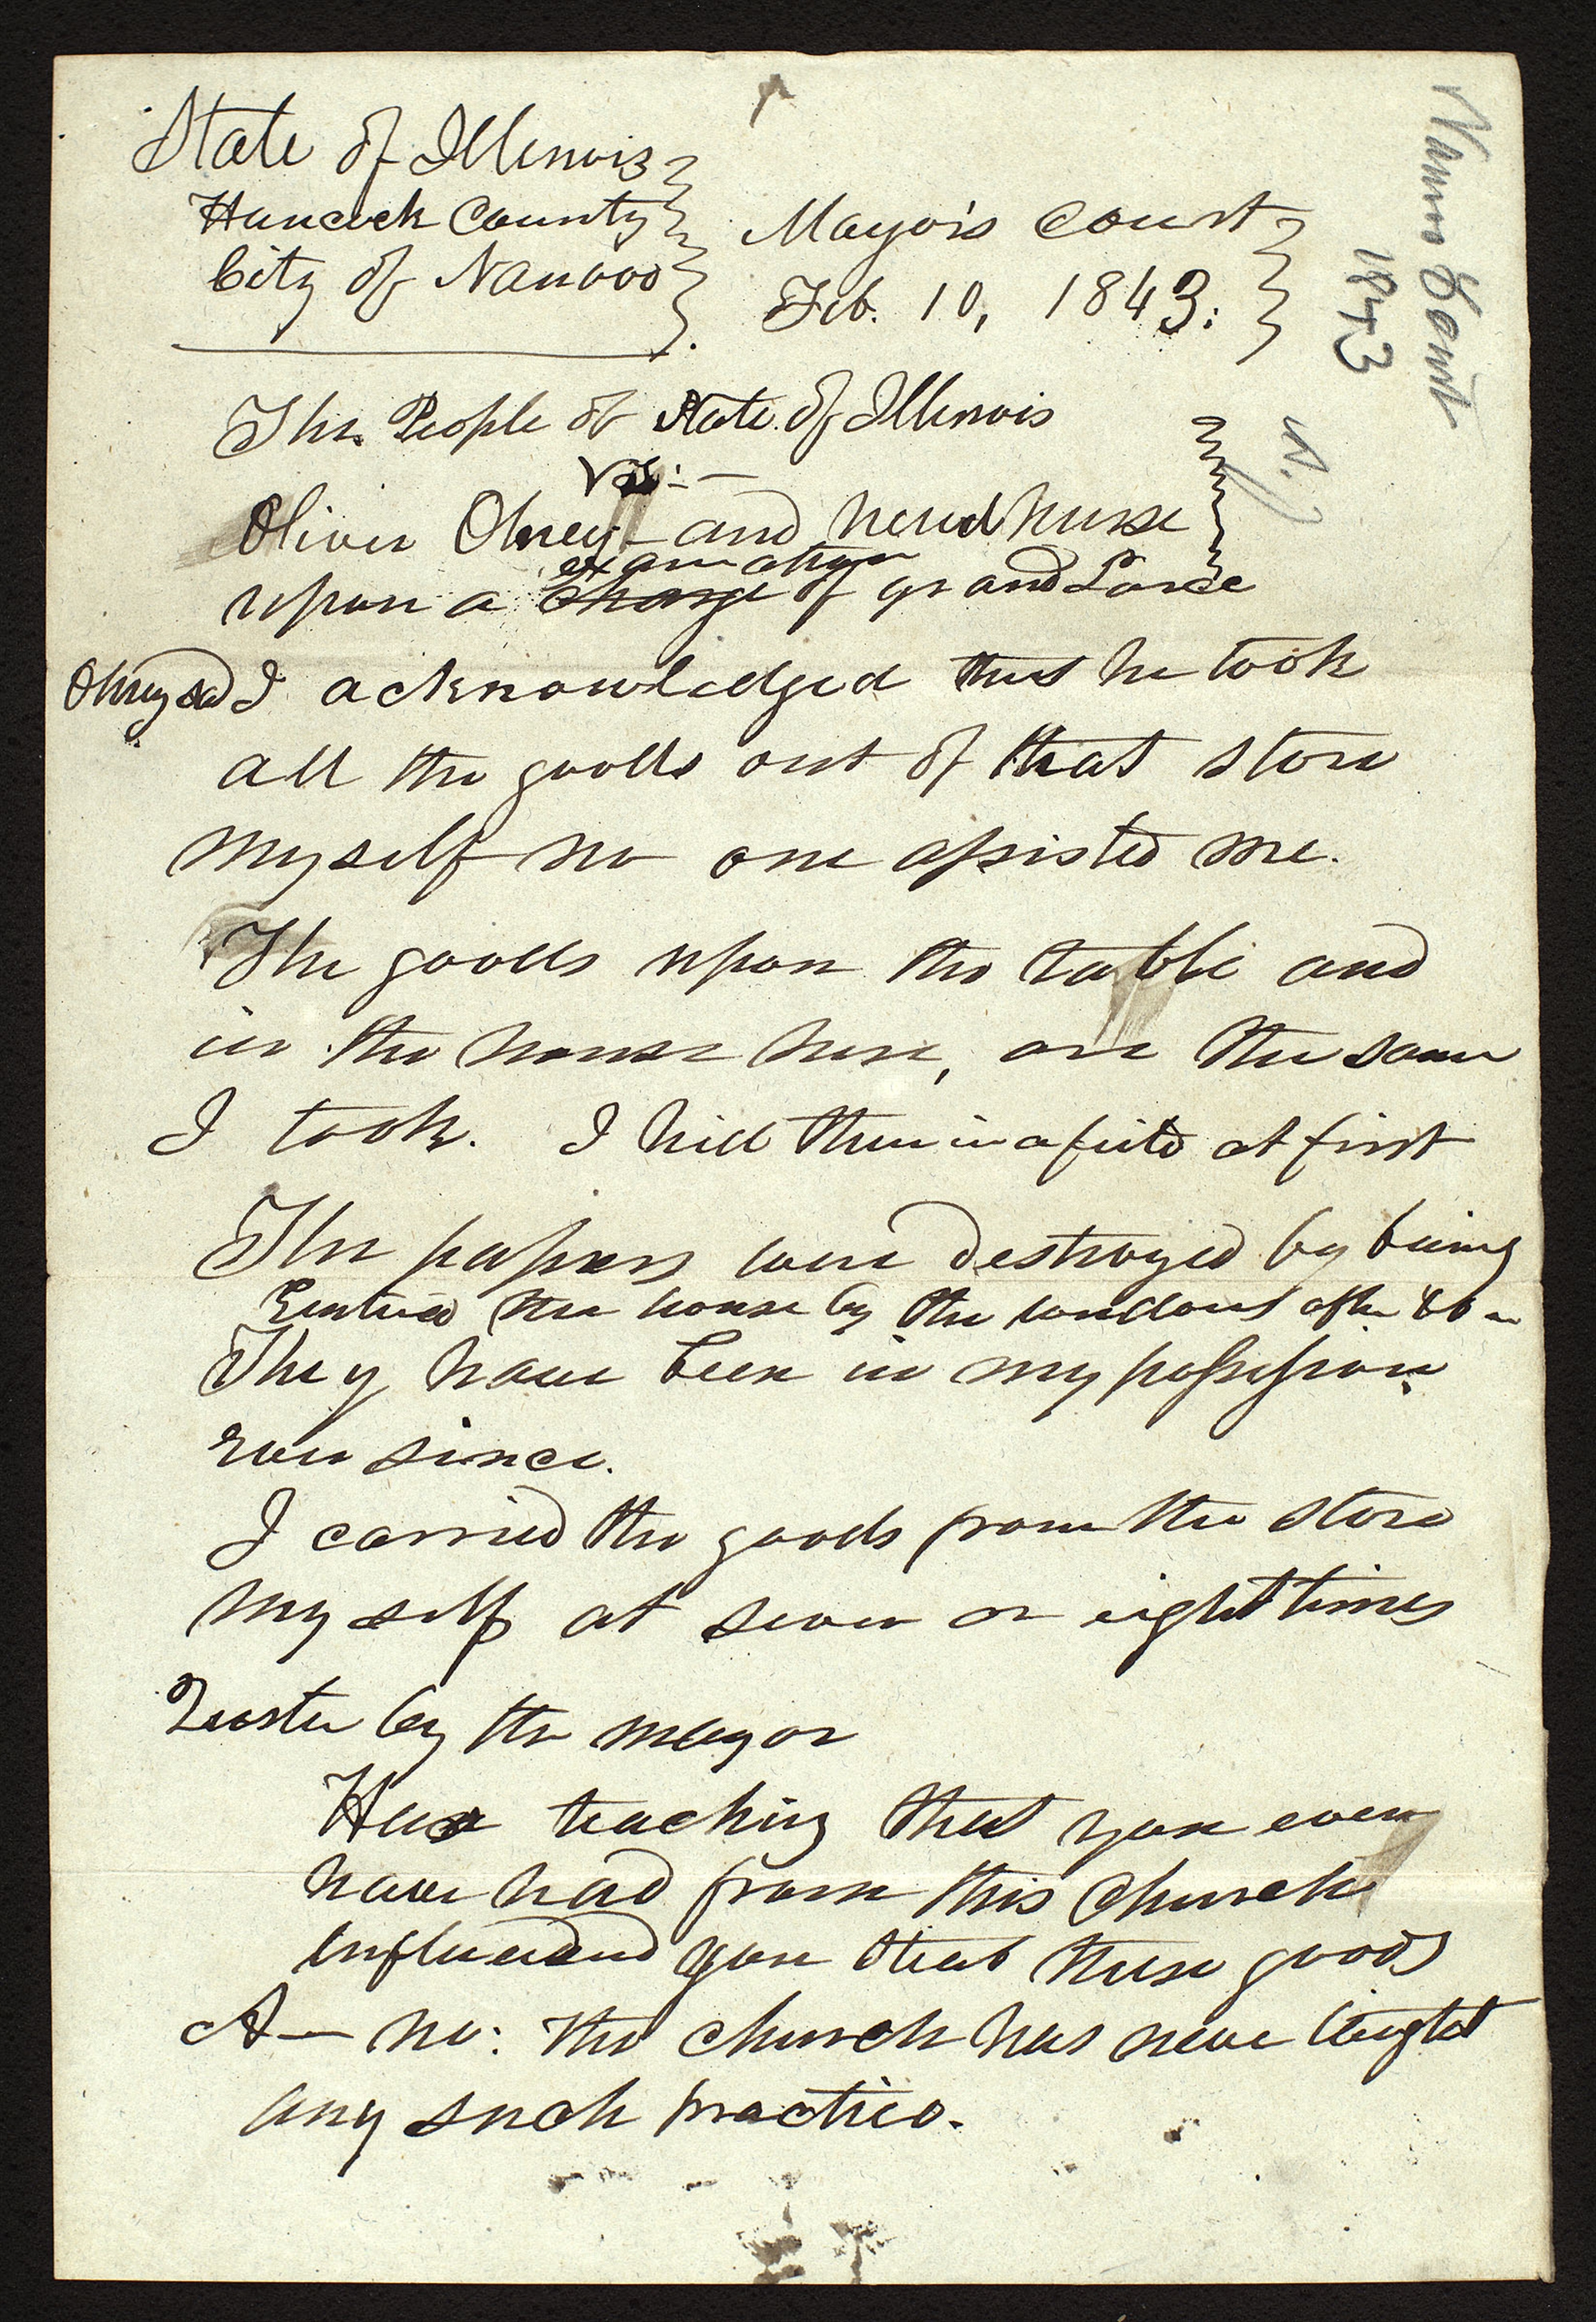 State of Illinois
Hancock County
City of Nauvoo
Mayor's Court
Feb. 10, 1843:
The People of State of Illinois
vs:—
Oliver Olney and
examation
upon a charge of grand Larce
Olney sd I acknowledged that he took
all the goods out of that store
myself no one assisted me.
The goods upon the table and
in the house here, are the same
I took. I hid them in a field at first
The papers were destroyed by being
Entered the house by the windows after
They have been in my possession
ever since.
I carried the goods from the store
myself at seven or eight times
by the mayor
Has teaching that you ever
have had from this church
influenced you that these goods
A— no: the church has never taught
any such practice.
Nauvoo Court
1843